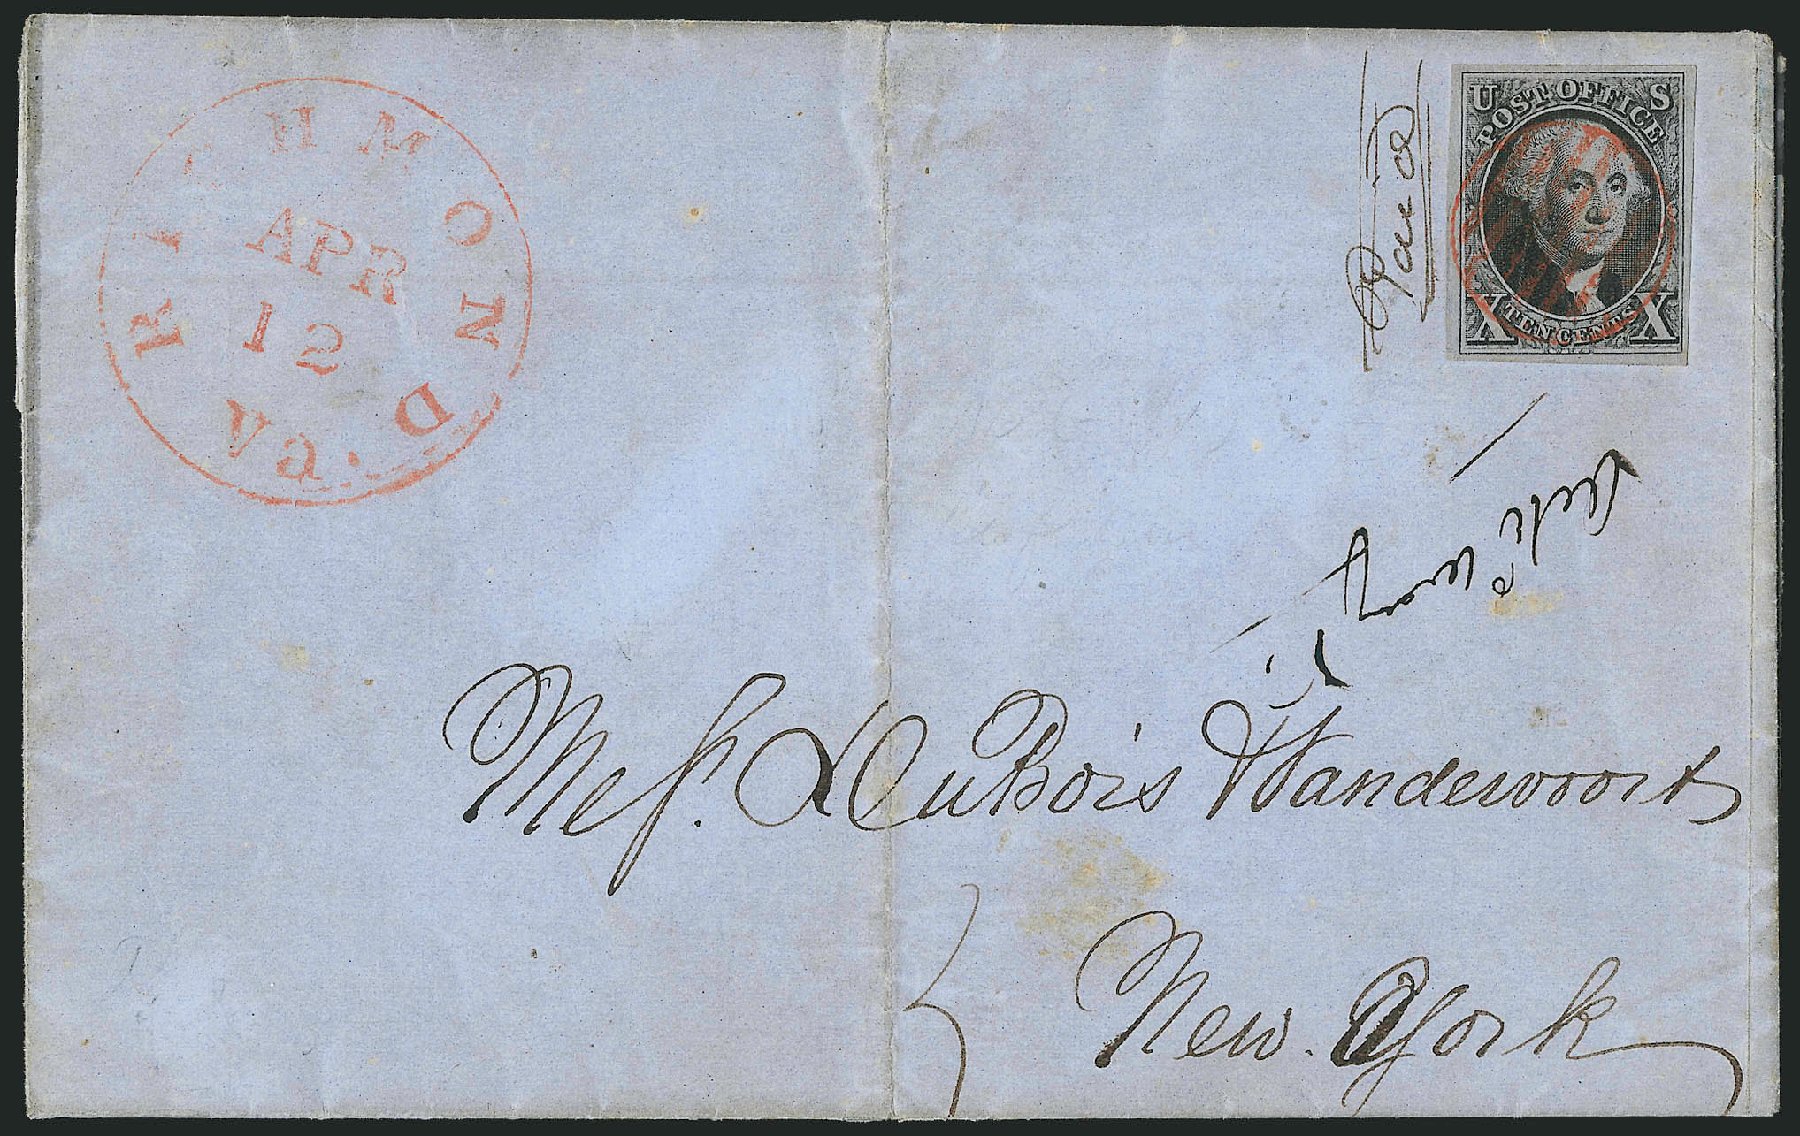 RICHMOND
APR
12
Paid
U S
POST OFFICE
X TEN CENTS X
Messr. DuBois Vandervoort
New York